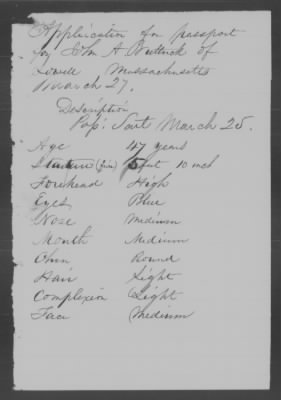 Application for passport
by John A Buttrick of
Lowell Massachusetts
March 27.
Description
Pap: Sent March 25.
Age 47 years
Stature (five) 5 feet 10 inch
Forehead High
Eyes Blue
Nose Medium
Mouth Medium
Chin Round
Hair Light
Complexion Light
Face Medium